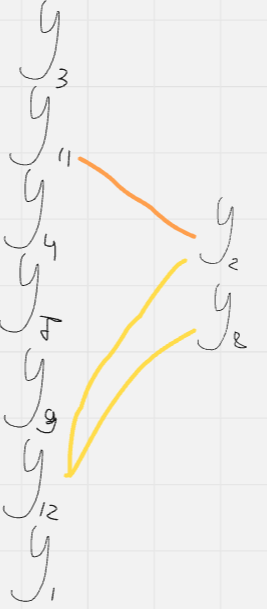 y3
y11
y4
y7
y9
y12
y1
y2
y8